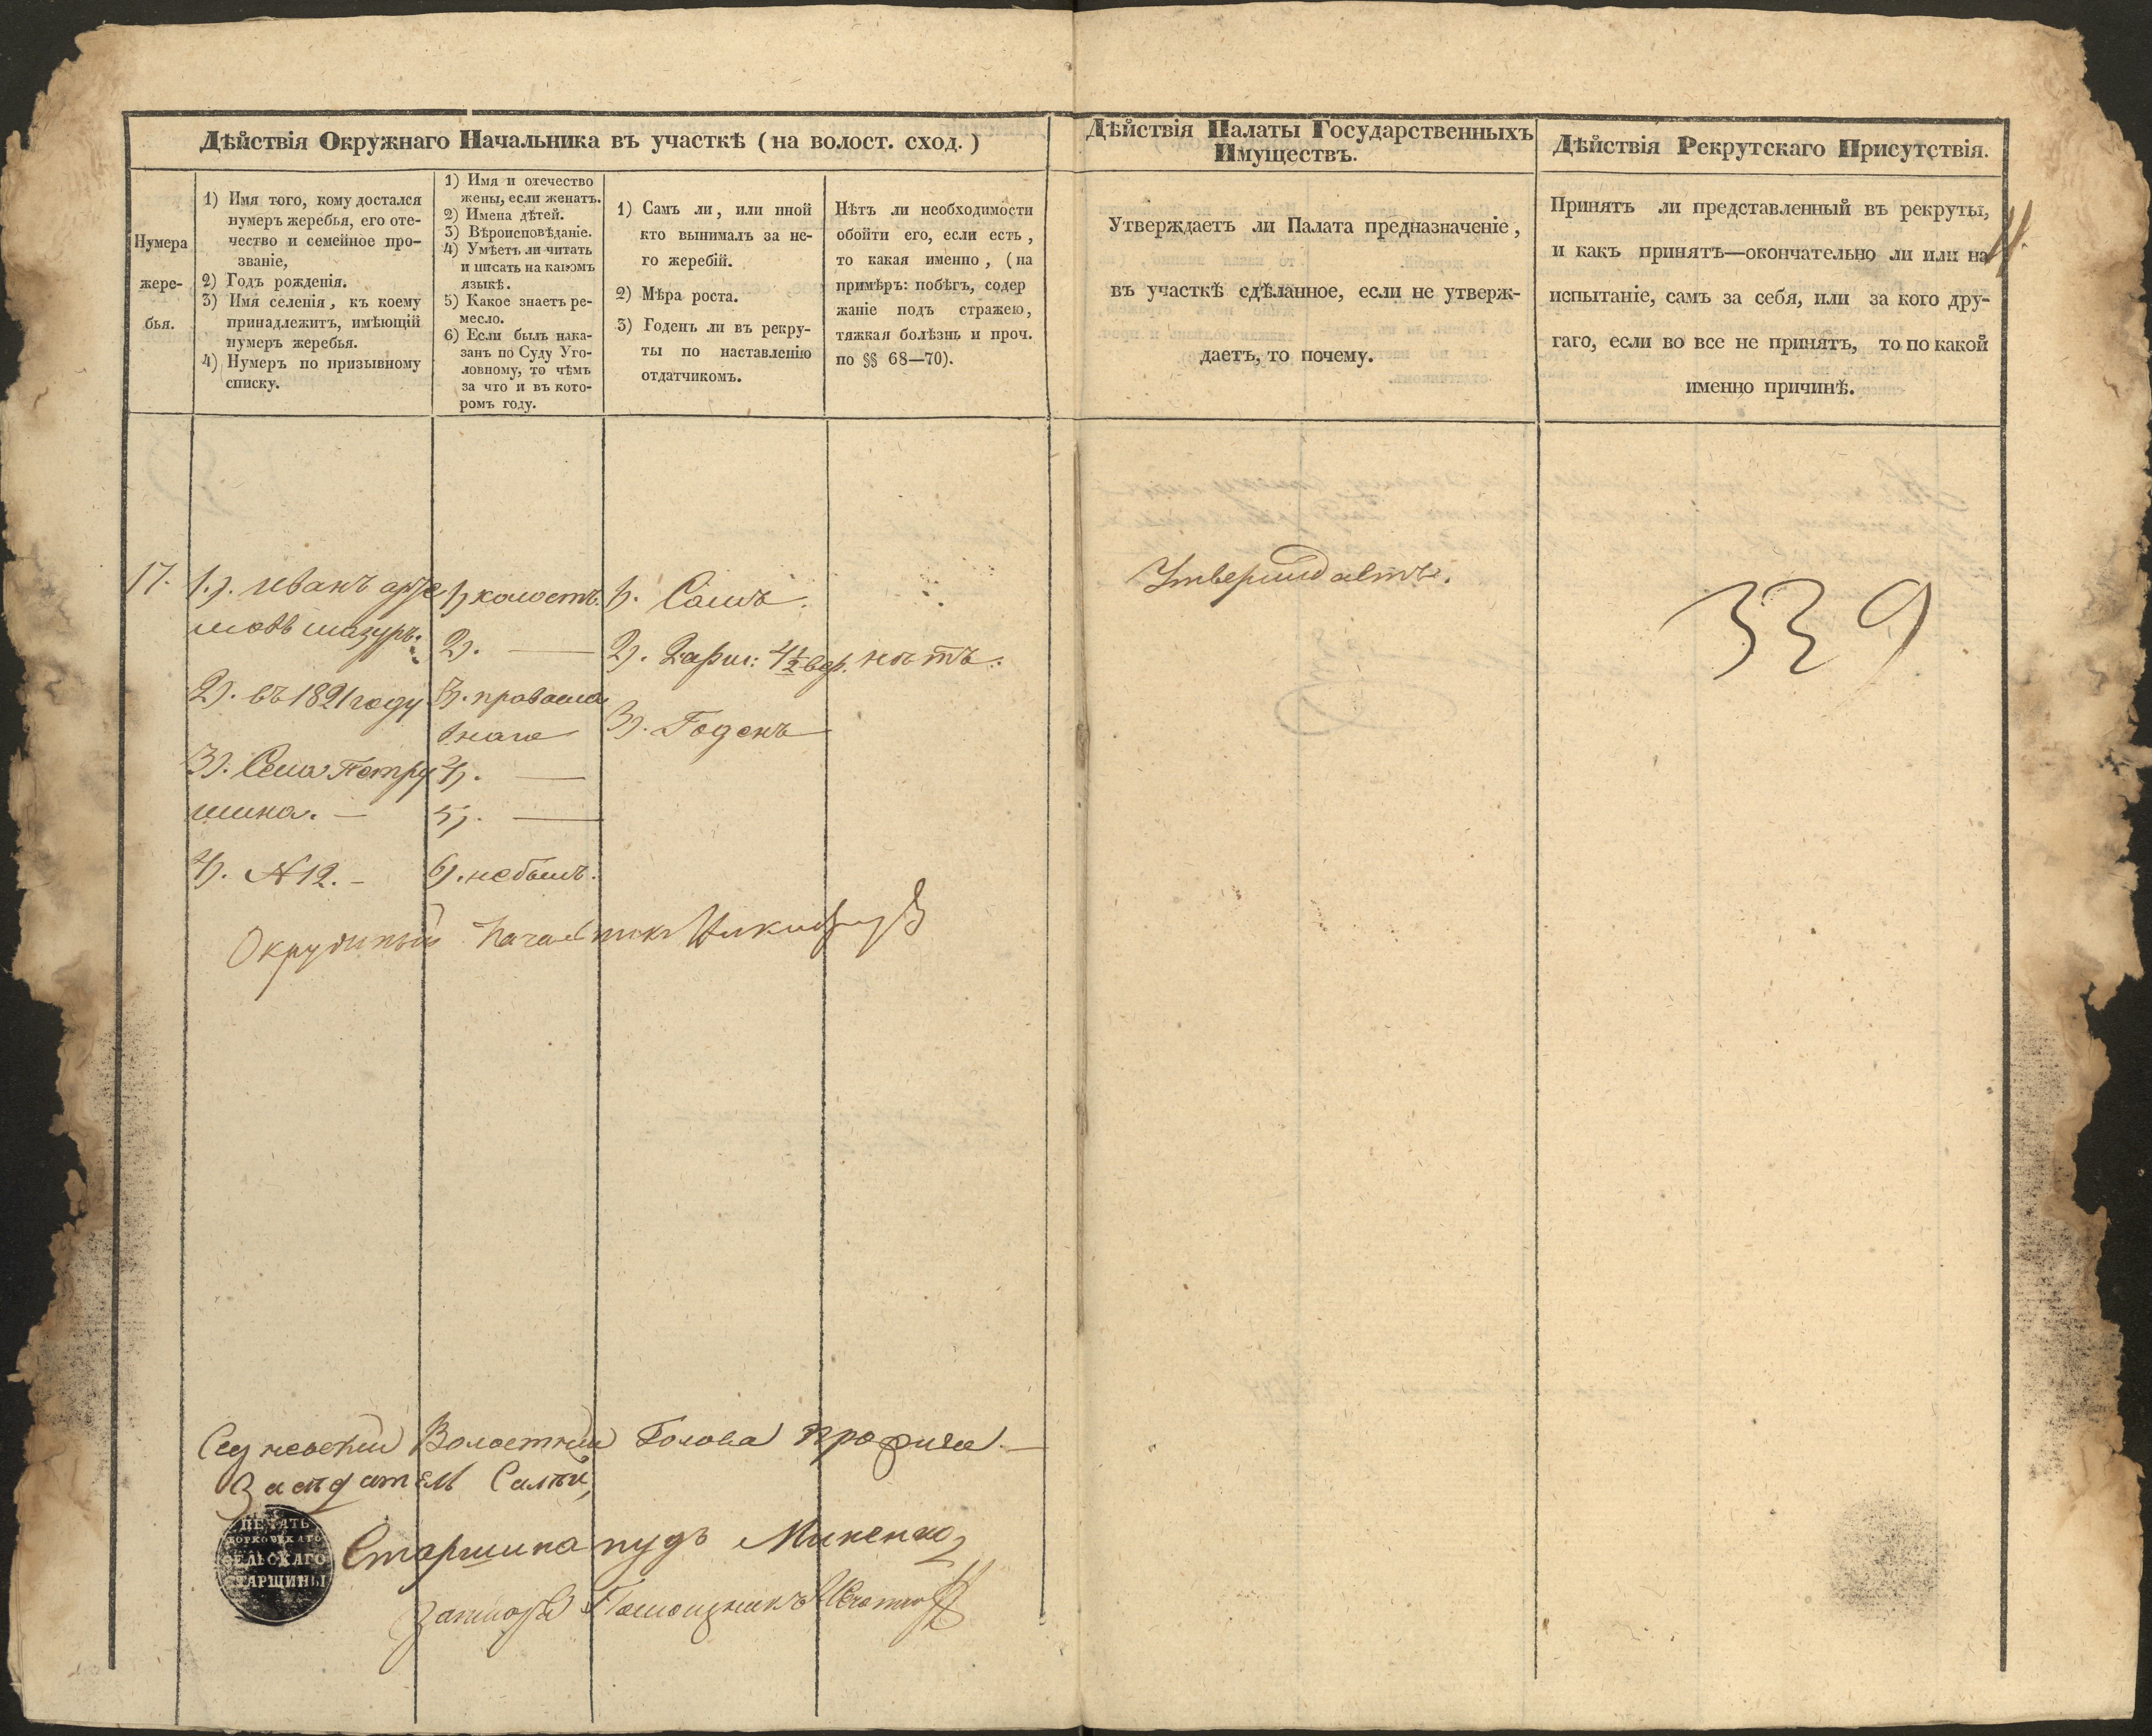 Дѣйствія Окружнаго Начальника въ участкѣ (на волост. сход.)
Нумера
жере-
бья.
1) Имя того, кому достался
нумеръ жеребья, его оте-
чество и семейное про-
званіе,
2) Годъ рожденія.
3) Имя селенія, къ коему
принадлежитъ, имѣющій
нумеръ жеребья.
4) Нумеръ по призывному
списку.
1) Имя и отечество
жены, если женатъ.
2) Имена дѣтей.
3) Вѣроисповѣданіе.
4) Умѣетъ ли читать
и писать на какомъ
языкѣ.
5) Какое знаетъ ре-
месло.
6) Если былъ нака-
занъ по Суду Уго-
ловному, то чѣмъ
за что и въ кото-
ромъ году.
1) Самъ ли, или иной
кто вынималъ за не-
го жеребій.
2) Мѣра роста.
3) Годенъ ли въ рекру-
ты по наставленію
отдатчикомъ.
Нѣтъ ли необходимости
обойти его, если есть,
то какая именно, (на
примѣръ: побѣгъ, содер
жаніе подъ стражею,
тяжкая болѣзнь и проч.
по §§ 68—70).
17.
1). иванъ
мазуръ.
2). въ 1821 году
3). Села Петру
шина. —
4). N 12. —
1) холостъ.
2). —
3). православ
наго
4). —
5). —
6). небылъ.
1). Самъ.
2). 2 арш: 4 1/2 вер.
3). Годенъ
нѣтъ.
Окружный Началникъ
Седневскій Волостной Голова
Засѣдатель
ПЕЧАТЬ
СЕЛЬСКАГО
СТАРШИНЫ
Старшина
Помощникъ
Дѣйствія Палаты Государственныхъ
Имуществъ.
Утверждаетъ ли Палата предназначеніе,
въ участкѣ сдѣланное, если не утверж-
даетъ, то почему.
Утверждаетъ.
Дѣйствія Рекрутскаго Присутствія.
Принятъ ли представленный въ рекруты,
и какъ принятъ—окончательно ли или на
испытаніе, самъ за себя, или за кого дру-
гаго, если во все не принятъ, то по какой
именно причинѣ.
339